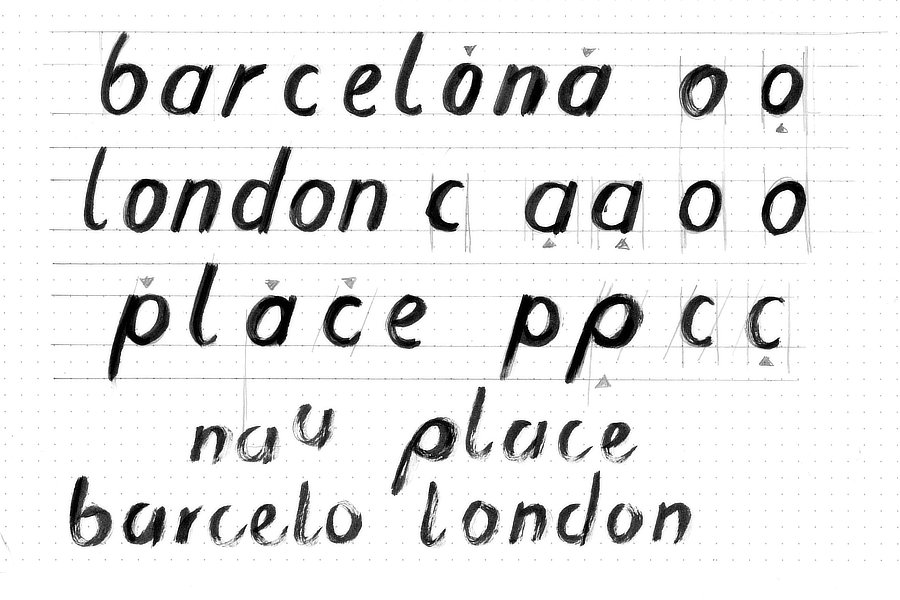 barcelona o o
london c a a o o
place p p c c
nau place
barcelo london